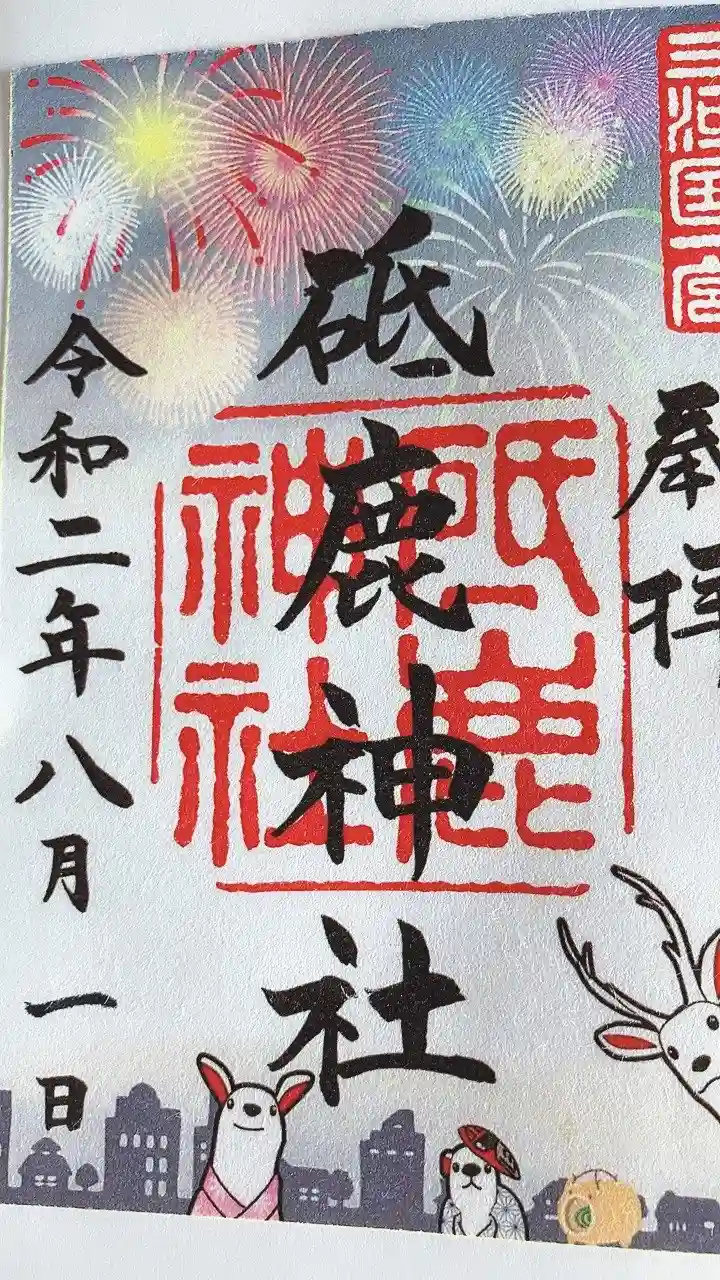 三河国一宮
奉拝
砥鹿神社
砥鹿神社
令和二年八月一日